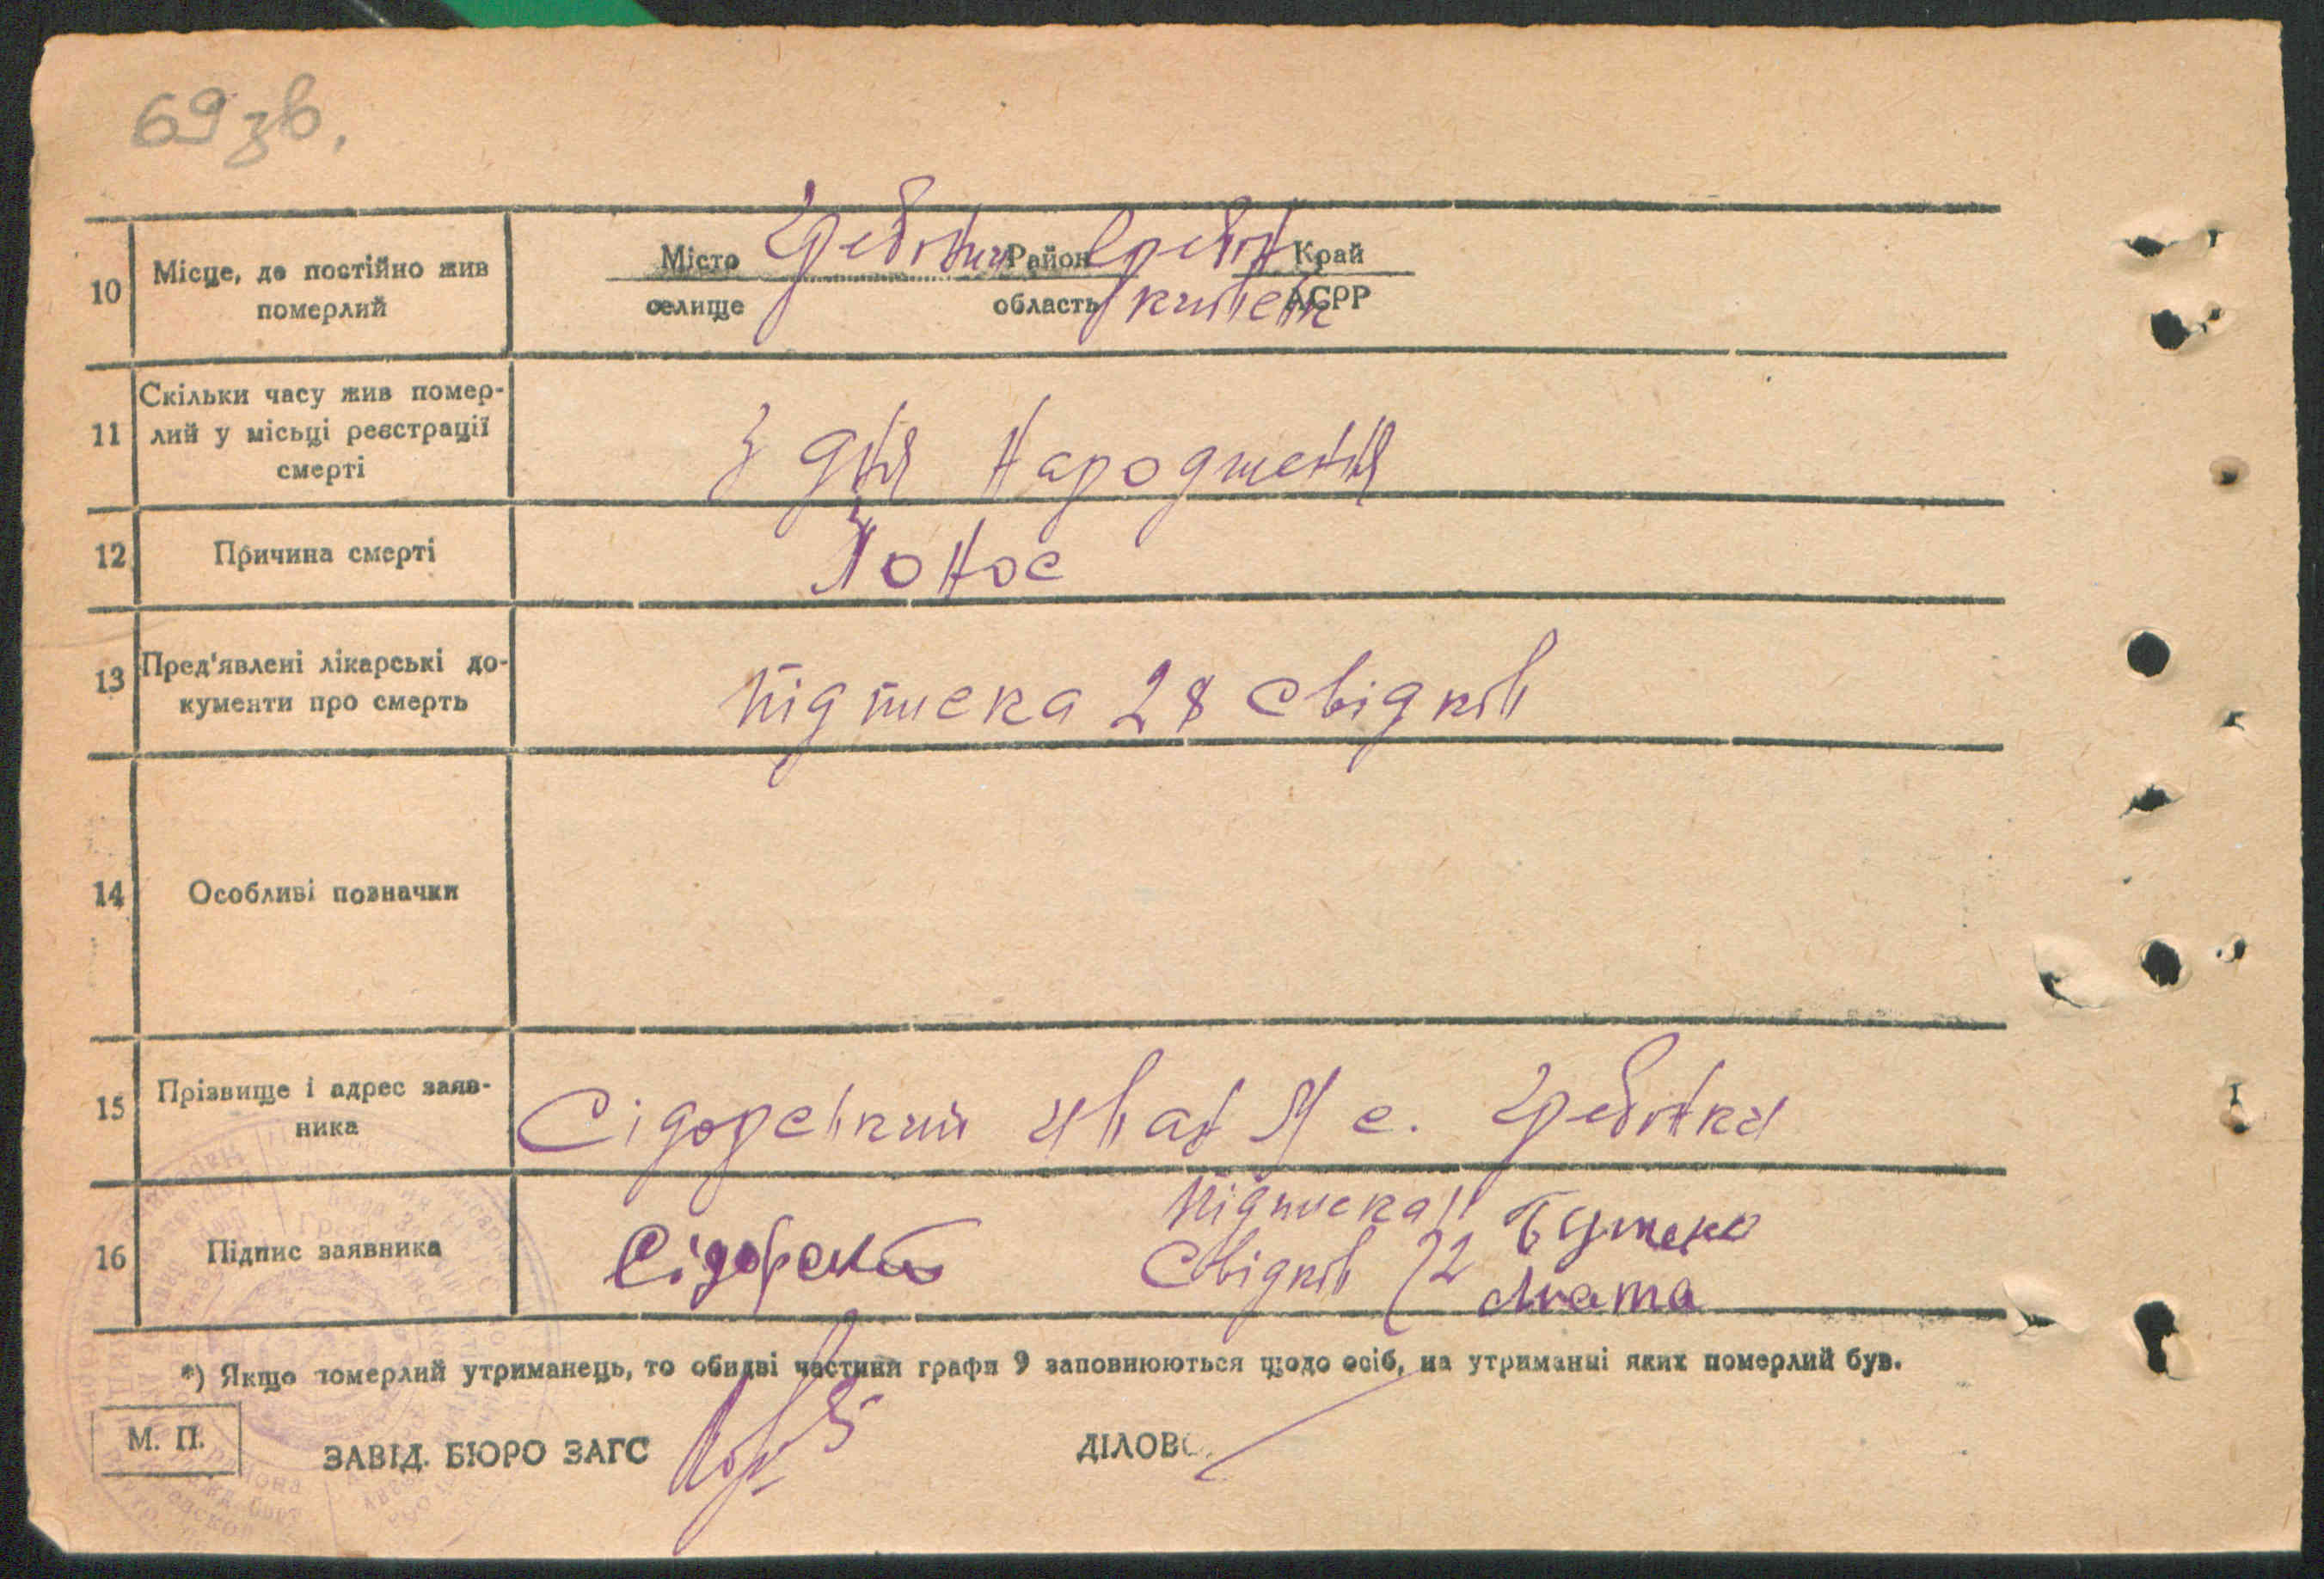 69 зв.
10 Місце, де постійно жив померлий Місто Гребінки Район Гребін Край
селище область київськ АСРР
11 Скільки часу жив помер-
лий у місьці реєстрації
смерті
з дня народження
12 Причина смерті Понос
13 Пред'явлені лікарські до-
кументи про смерть
підписка 2х свідків
14 Особливі позначки
15 Прізвище і адрес заяв-
ника
Сідорський Іван Я с. Гребінки
16 Підпис заявника Сідорский
підписка
свідків 2
*) Якщо померлий утриманець, то обидві частини графи 9 заповнюються щодо осіб, на утриманні яких померлий був.
М. П.
ЗАВІД. БЮРО ЗАГС ДІЛОВО